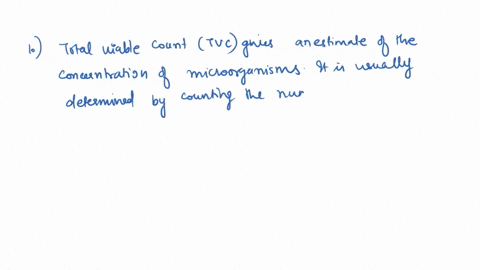 10) Total viable count (TVC) gives an estimate of the
concentration of microorganisms. It is usually
determined by counting the nu